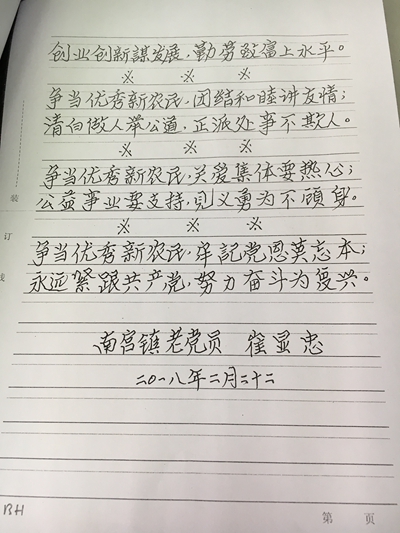 创业创新謀发展，勤劳致富上水平。
※ ※ ※
争当优秀新农民，团结和睦讲友情；
清白做人举公道，正派处事不欺人。
※ ※ ※
争当优秀新农民，关爱集体要热心；
公益事业要支持，见义勇为不顾身。
※ ※ ※
争当优秀新农民，牢記党恩莫忘本；
永远紧跟共产党，努力奋斗为复兴。
南宫镇老党员 崔显忠
二〇一八年二月二十二
装
订
线
BH
第 页